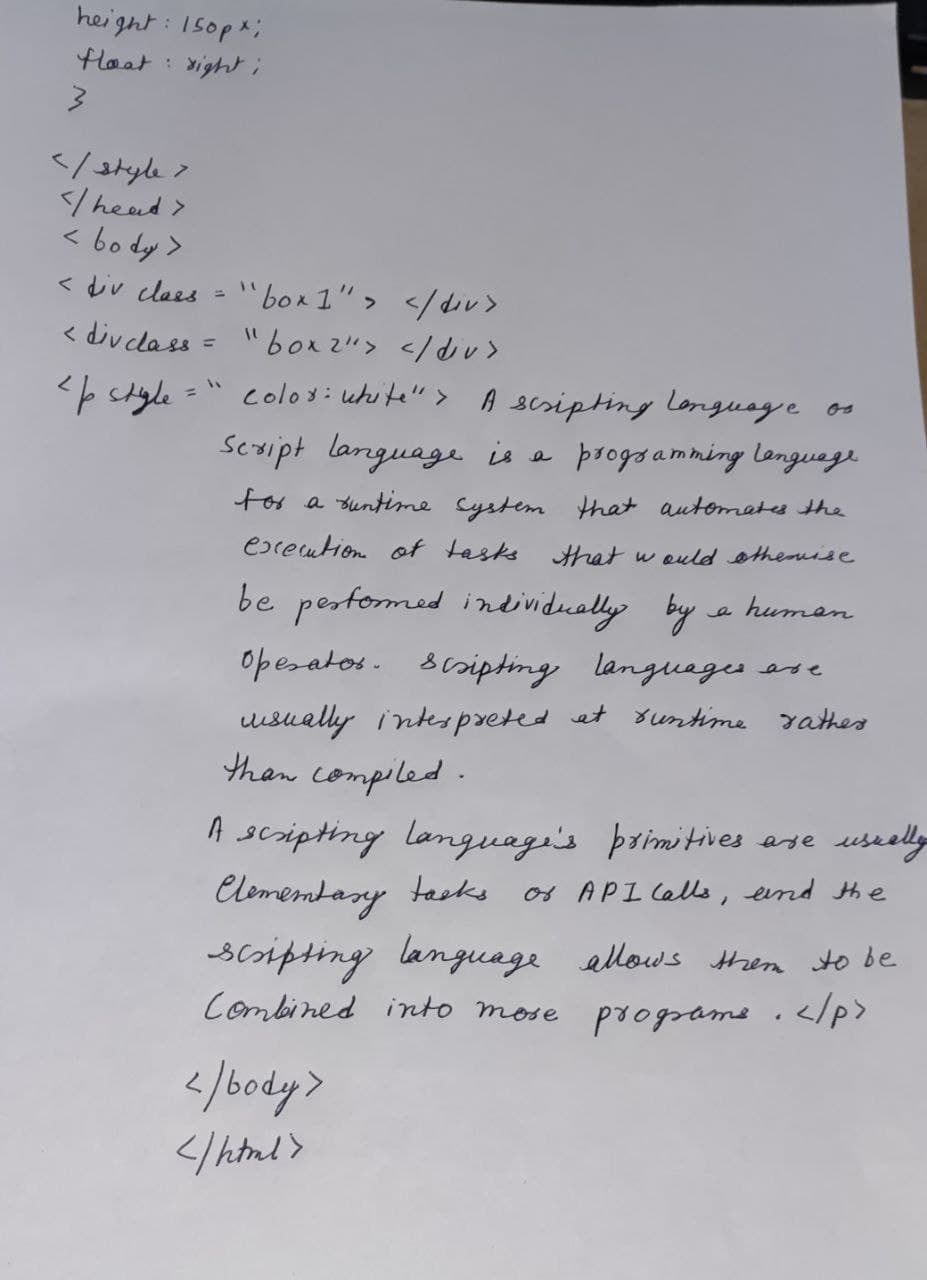 height : 150px;
float : right ;
}
</style>
</head>
<body>
<div class = "box1"> </div>
<divclass = "box2"> </div>
<p style = " color: white"> A scripting language or
script language is a programming language
for a runtime system that automates the
execution of tasks that would otherwise
be performed individually by a human
operator. scripting languages are
usually interpreted at runtime rather
than compiled.
A scripting language's primitives are usually
Elementary tasks or API calls, and the
scripting language allows them to be
Combined into more programs. </p>
</body>
</html>